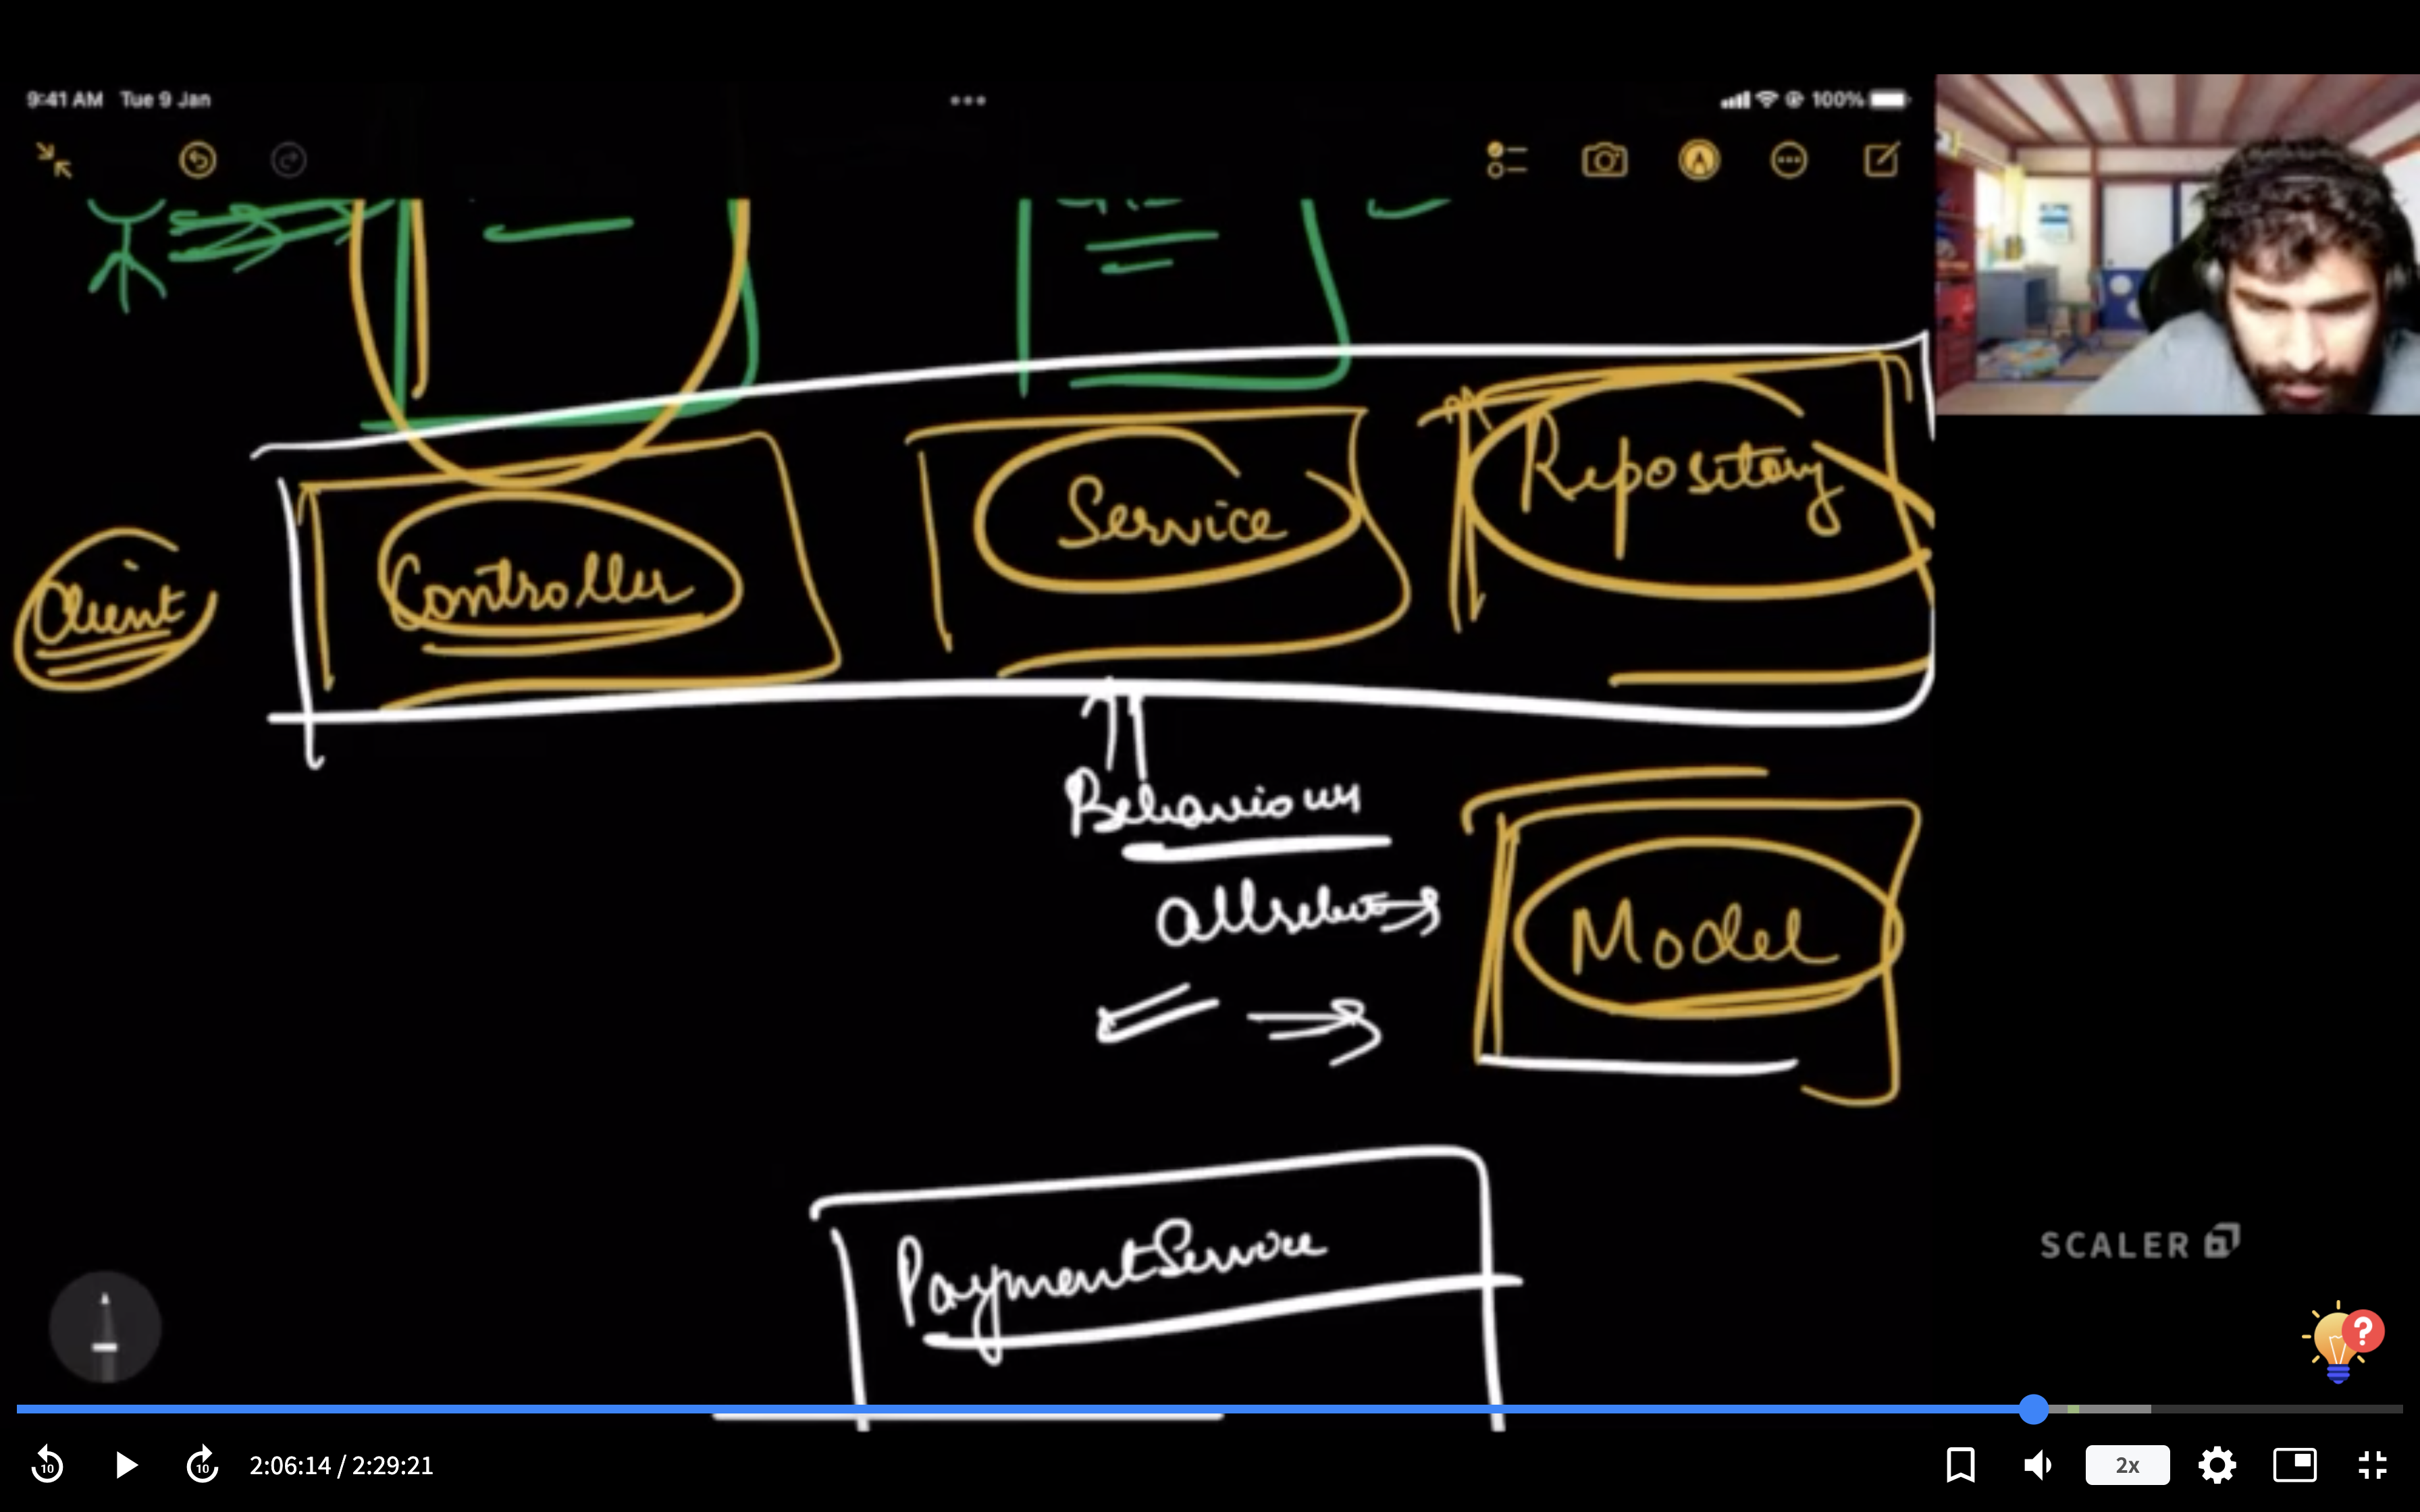 9:41 AM Tue 9 Jan
100%
Client
Controller
Service
Repository
Behaviour
Model
PaymentService
SCALER
?
10
10
2:06:14 / 2:29:21
2x